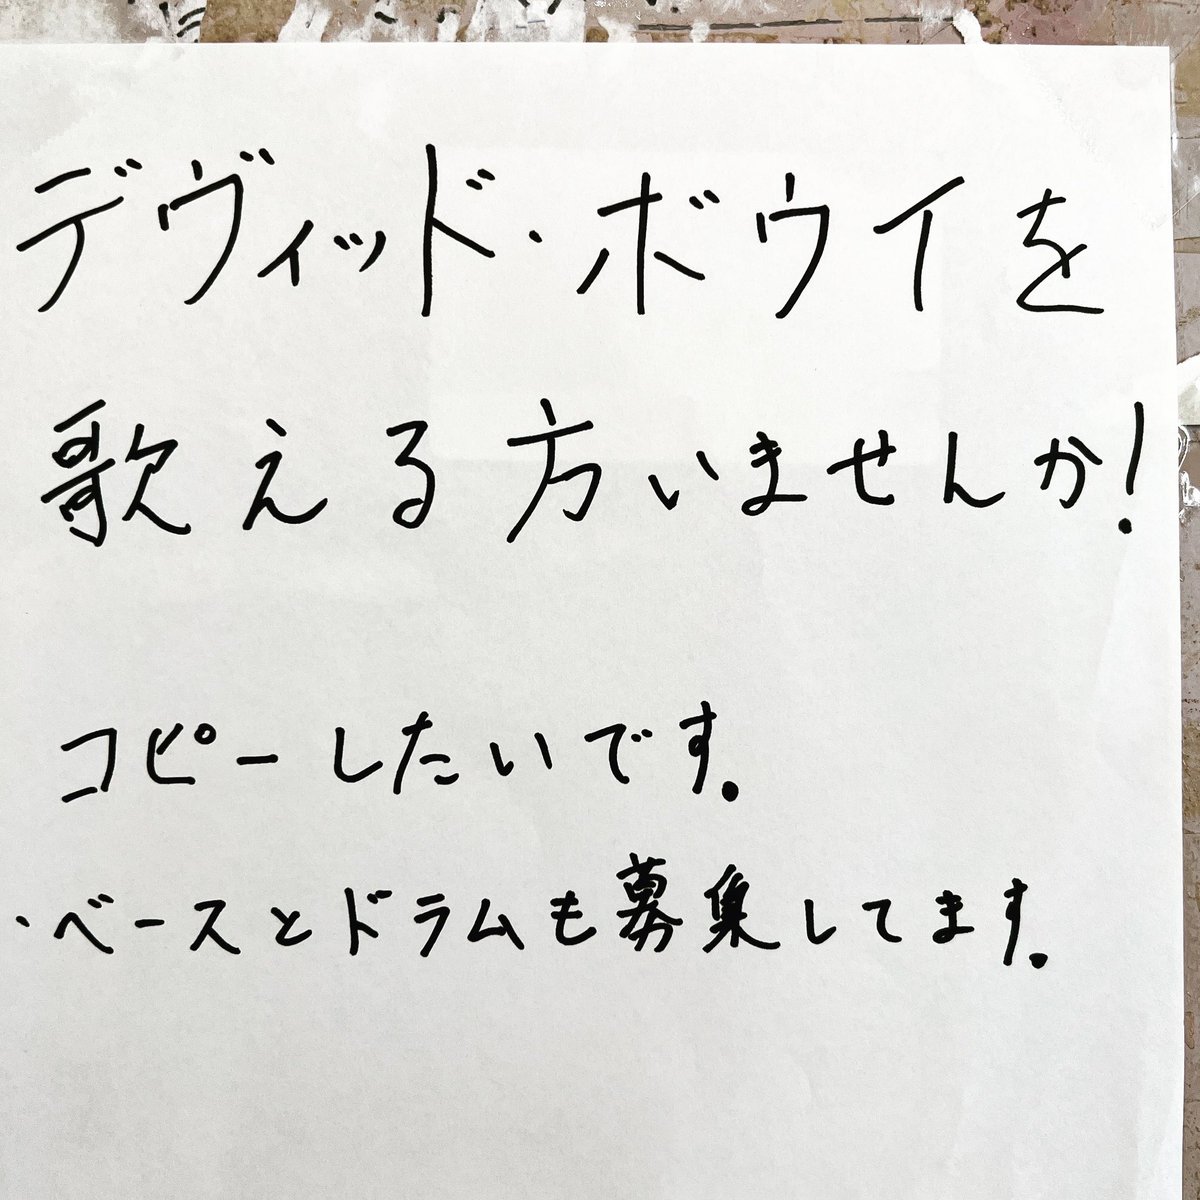 デヴィッド・ボウイを
歌える方いませんか!
コピーしたいです。
・ベースとドラムも募集してます。